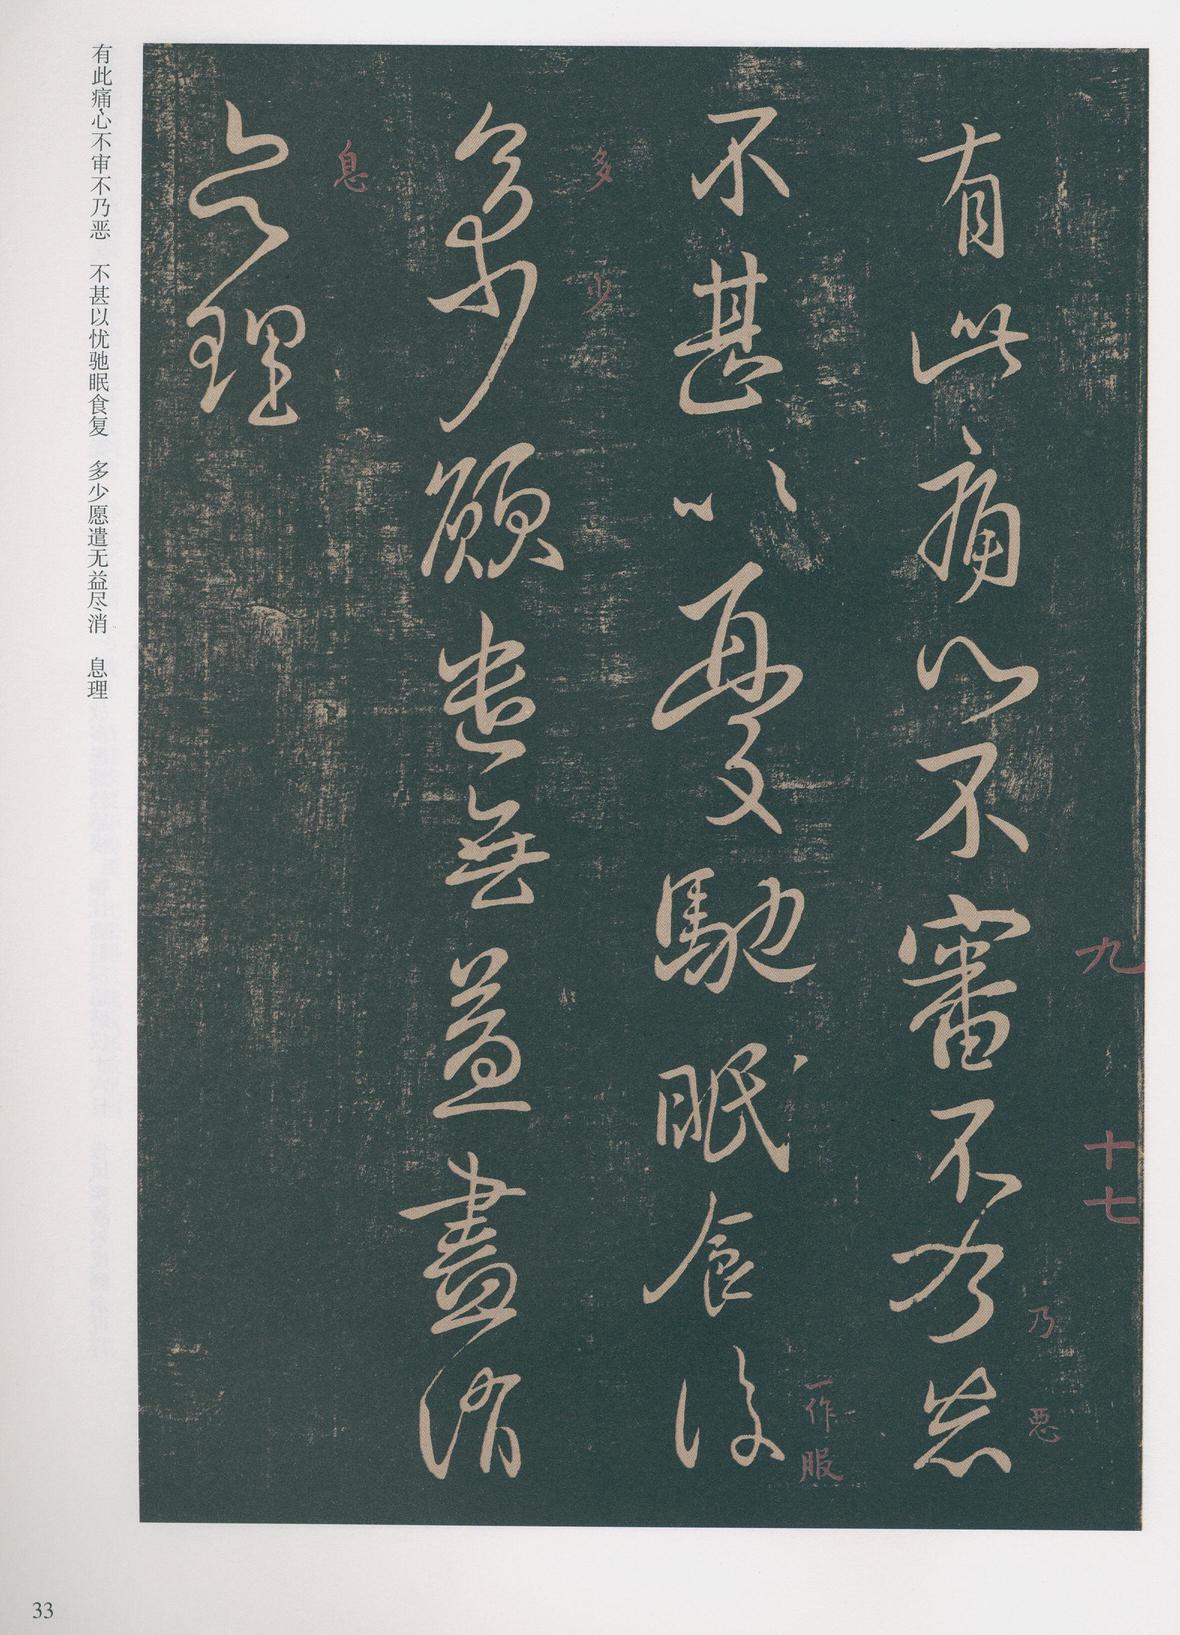 有此痛心不審不乃惡
不甚以憂馳眠食復
多少願遣無益盡消
息理
九
十七
乃
惡
一作服
多
少
息
有此痛心不审不乃恶 不甚以忧驰眠食复 多少愿遣无益尽消 息理
33